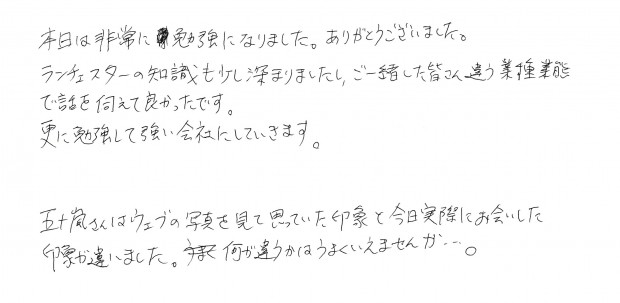 本日は非常に勉強になりました。ありがとうございました。
ランチェスターの知識も少し深まりましたし、ご一緒した皆さん違う業種業態
で話を伺えて良かったです。
更に勉強して強い会社にしていきます。
五十嵐さんはウェブの写真を見て思っていた印象と今日実際にお会いした
印象が違いました。何が違うかはうまくいえませんが…。